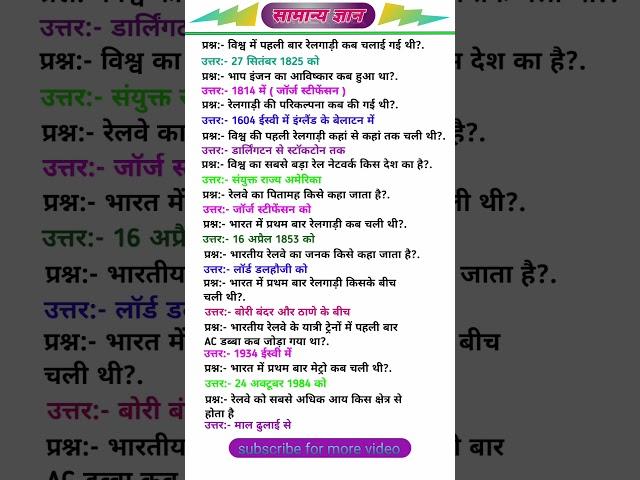 सामान्य ज्ञान
प्रश्न:- विश्व में पहली बार रेलगाड़ी कब चलाई गई थी?.
उत्तर:- 27 सितंबर 1825 को
प्रश्न:- भाप इंजन का आविष्कार कब हुआ था?.
उत्तर:- 1814 में ( जॉर्ज स्टीफेंसन )
प्रश्न:- रेलगाड़ी की परिकल्पना कब की गई थी?.
उत्तर:- 1604 ईस्वी में इंग्लैंड के बेलाटन में
प्रश्न:- विश्व की पहली रेलगाड़ी कहां से कहां तक चली थी?.
उत्तर:- डार्लिंगटन से स्टॉकटोन तक
प्रश्न:- विश्व का सबसे बड़ा रेल नेटवर्क किस देश का है?.
उत्तर:- संयुक्त राज्य अमेरिका
प्रश्न:- रेलवे का पितामह किसे कहा जाता है?.
उत्तर:- जॉर्ज स्टीफेंसन को
प्रश्न:- भारत में प्रथम बार रेलगाड़ी कब चली थी?.
उत्तर:- 16 अप्रैल 1853 को
प्रश्न:- भारतीय रेलवे का जनक किसे कहा जाता है?.
उत्तर:- लॉर्ड डलहौजी को
प्रश्न:- भारत में प्रथम बार रेलगाड़ी किसके बीच
चली थी?.
उत्तर:- बोरी बंदर और ठाणे के बीच
प्रश्न:- भारतीय रेलवे के यात्री ट्रेनों में पहली बार
AC डब्बा कब जोड़ा गया था?.
उत्तर:- 1934 ईस्वी में
प्रश्न:- भारत में प्रथम बार मेट्रो कब चली थी?.
उत्तर:- 24 अक्टूबर 1984 को
प्रश्न:- रेलवे को सबसे अधिक आय किस क्षेत्र से
होता है
उत्तर:- माल ढुलाई से
subscribe for more video
उत्तर:- डार्लिंग
प्रश्न:- विश्व का
उत्तर:- संयुक्त
प्रश्न:- रेलवे का
उत्तर:- जॉर्ज
प्रश्न:- भारत में
उत्तर:- 16 अप्रै
प्रश्न:- भारतीय
उत्तर:- लॉर्ड
प्रश्न:- भारत में
चली थी?.
उत्तर:- बोरी बं
प्रश्न:- भारतीय
AC डब्बा कब
देश का है?.
जाता है?.
बीच
बार